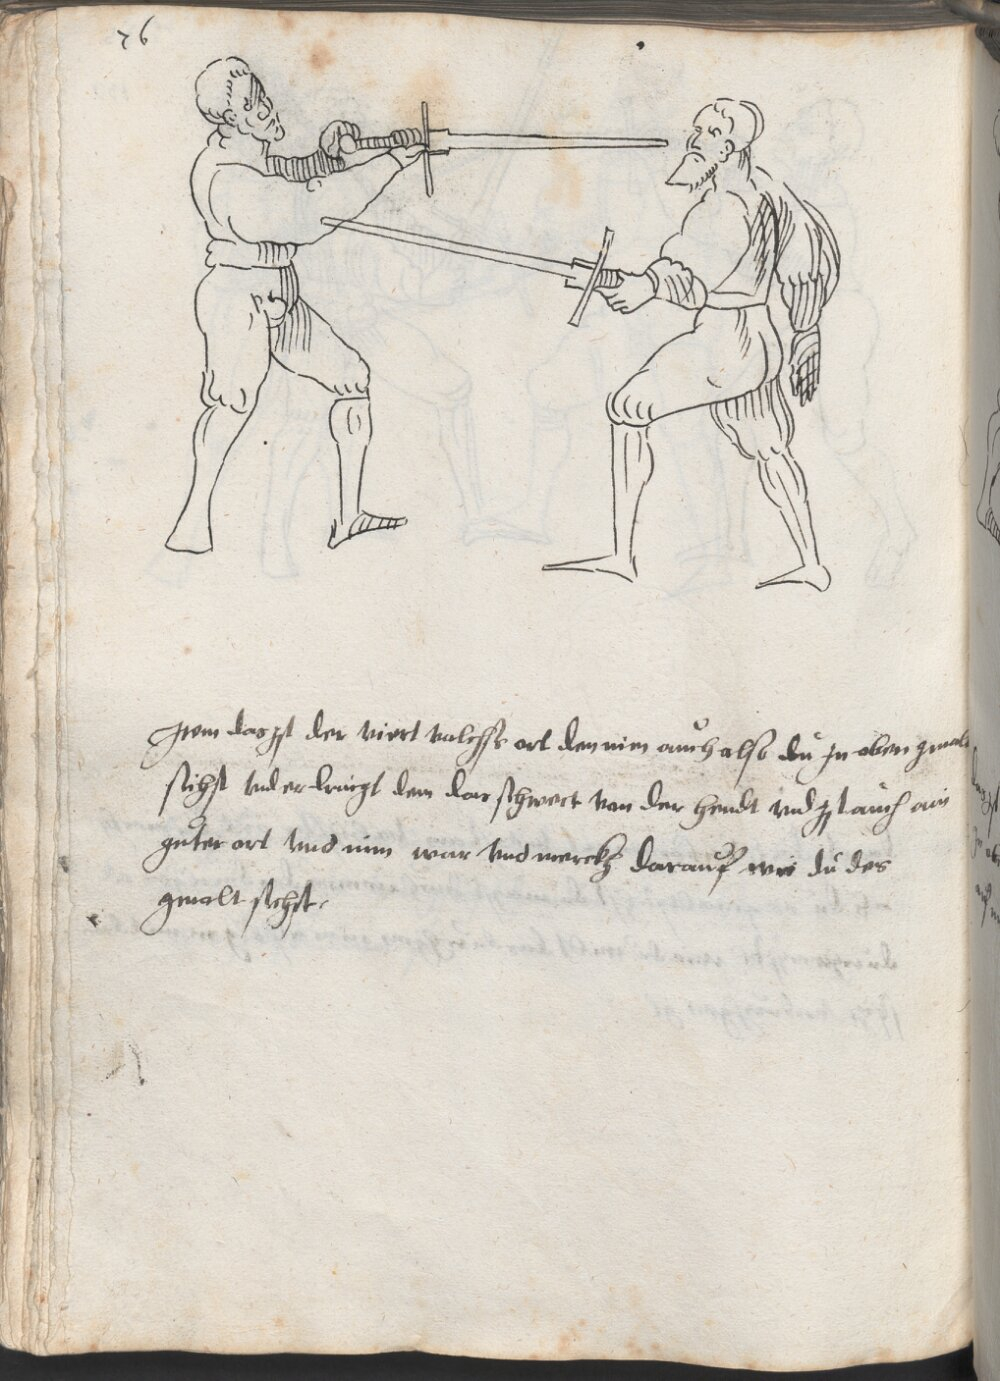 76
Item das ist der viert valchss ort den nim auch also du In oben gmalt
sichst vnd er dringt dem das schwert von der hendt vnd ist auch ain
guter ort vnd nim war vnd merckh darauf wie du des
gmalt sichst